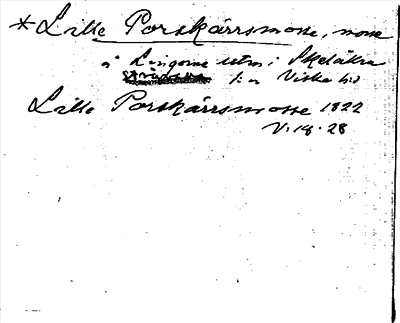 *Lille Porskärrsmosse, mosse
å Lingome utm. i Skelåkra
l:a Viske hd
Lille Porskärrsmosse 1822
V: 19. 28